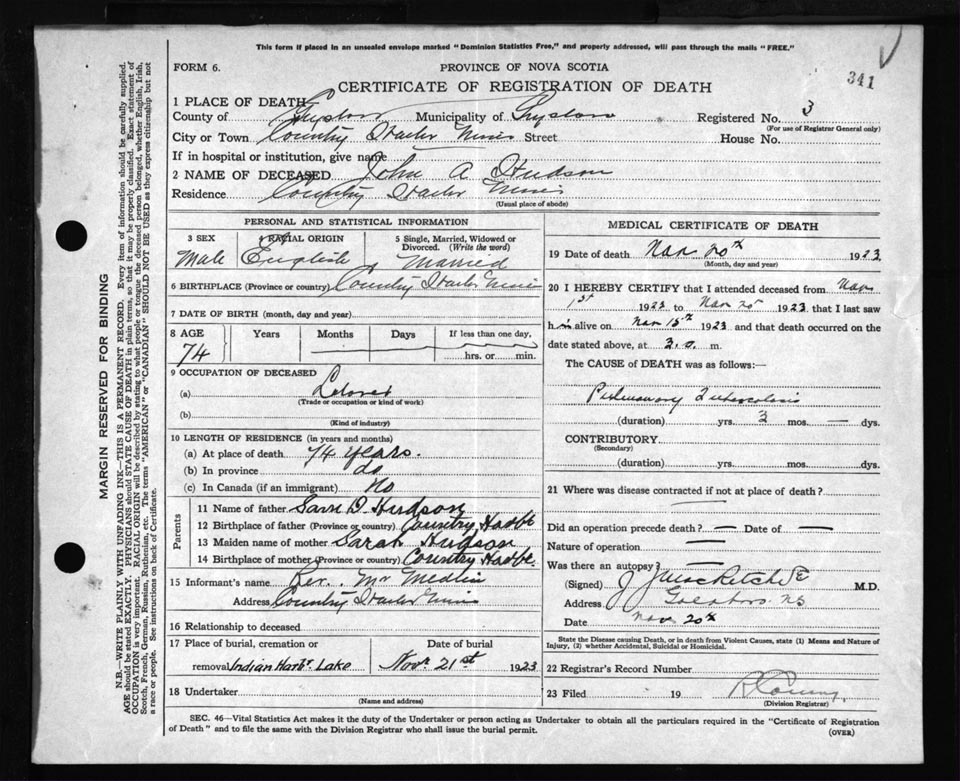 This form if placed in an unsealed envelope marked "Dominion Statistics Free," and properly addressed, will pass through the mails "FREE."
FORM 6.
PROVINCE OF NOVA SCOTIA
341
CERTIFICATE OF REGISTRATION OF DEATH
1 PLACE OF DEATH
County of Municipality of Registered No. 3
(For use of Registrar General only)
City or Town Country Harbor Mines Street House No.
If in hospital or institution, give name
2 NAME OF DECEASED John A Hudson
Residence Country Harbor Mines
(Usual place of abode)
PERSONAL AND STATISTICAL INFORMATION
3 SEX 4 RACIAL ORIGIN 5 Single, Married, Widowed or Divorced. (Write the word)
Male English Married
6 BIRTHPLACE (Province or country) Country Harbor Mines
7 DATE OF BIRTH (month, day and year)
8 AGE Years Months Days If less than one day,
74 hrs. or min.
9 OCCUPATION OF DECEASED
(a)
(Trade or occupation or kind of work)
(b)
(Kind of industry)
10 LENGTH OF RESIDENCE (in years and months)
(a) At place of death 74 years.
(b) In province do
(c) In Canada (if an immigrant) No
Parents
11 Name of father Hudson
12 Birthplace of father (Province or country) Country Harbe
13 Maiden name of mother Sarah Hudson
14 Birthplace of mother (Province or country) Country Harbe.
15 Informant's name Mr
Address Country Harbor Mines
16 Relationship to deceased
17 Place of burial, cremation or Date of burial
removal Indian Harbr Lake Novr 21st 1923
18 Undertaker
(Name and address)
MEDICAL CERTIFICATE OF DEATH
19 Date of death Nov 20th 1923
(Month, day and year)
20 I HEREBY CERTIFY that I attended deceased from Nov
1st 1923 to Nov 20 1923 that I last saw
him alive on Nov 15th 1923 and that death occurred on
date stated above, at m.
The CAUSE of DEATH was as follows:—
Pulmonary Tuberculosis
(duration) yrs. 3 mos. — dys.
CONTRIBUTORY
(Secondary)
(duration) yrs. mos. dys.
21 Where was disease contracted if not at place of death?
Did an operation precede death? — Date of —
Nature of operation —
Was there an autopsy? —
(Signed) M.D.
Address NS
Date Nov 20th
State the Disease causing Death, or in death from Violent Causes, state (1) Means and Nature of Injury, (2) whether Accidental, Suicidal or Homicidal.
22 Registrar's Record Number
23 Filed 19
(Division Registrar)
SEC. 46—Vital Statistics Act makes it the duty of the Undertaker or person acting as Undertaker to obtain all the particulars required in the "Certificate of Registration
of Death" and to file the same with the Division Registrar who shall issue the burial permit.
(OVER)
MARGIN RESERVED FOR BINDING
N.B.—WRITE PLAINLY WITH UNFADING INK—THIS IS A PERMANENT RECORD. Every item of information should be carefully supplied.
AGE should be stated EXACTLY. PHYSICIANS should STATE CAUSE OF DEATH in plain terms, so that it may be properly classified. Exact statement of
OCCUPATION is very important. RACIAL ORIGIN will be described by stating to what people or tongue the deceased person belonged, whether English, Irish,
Scotch, French, German, Russian, Ruthenian, etc. The terms "AMERICAN" or "CANADIAN" SHOULD NOT BE USED as they express citizenship but not
a race or people. See instructions on back of Certificate.